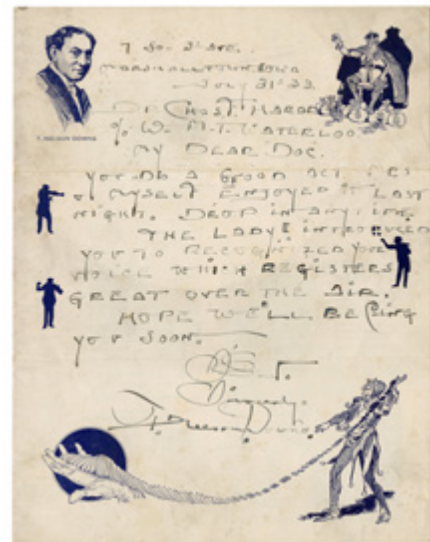 7 So. 3rd Ave.
MARSHALLTOWN IOWA
JULY 31st 33.
T. NELSON DOWNS
W.M.T. WATERLOO
MY DEAR DOC.
YOU DO A GOOD ACT
MYSELF ENJOYED IT LAST
NIGHT. DROP IN ANYTIME
THE LADY I INTRODUCED
YOU TO RECOGNIZED YOUR
VOICE WHICH REGISTERS
GREAT OVER THE AIR.
HOPE WE'LL BE
YOU SOON.
Sincerely
T. Nelson Downs